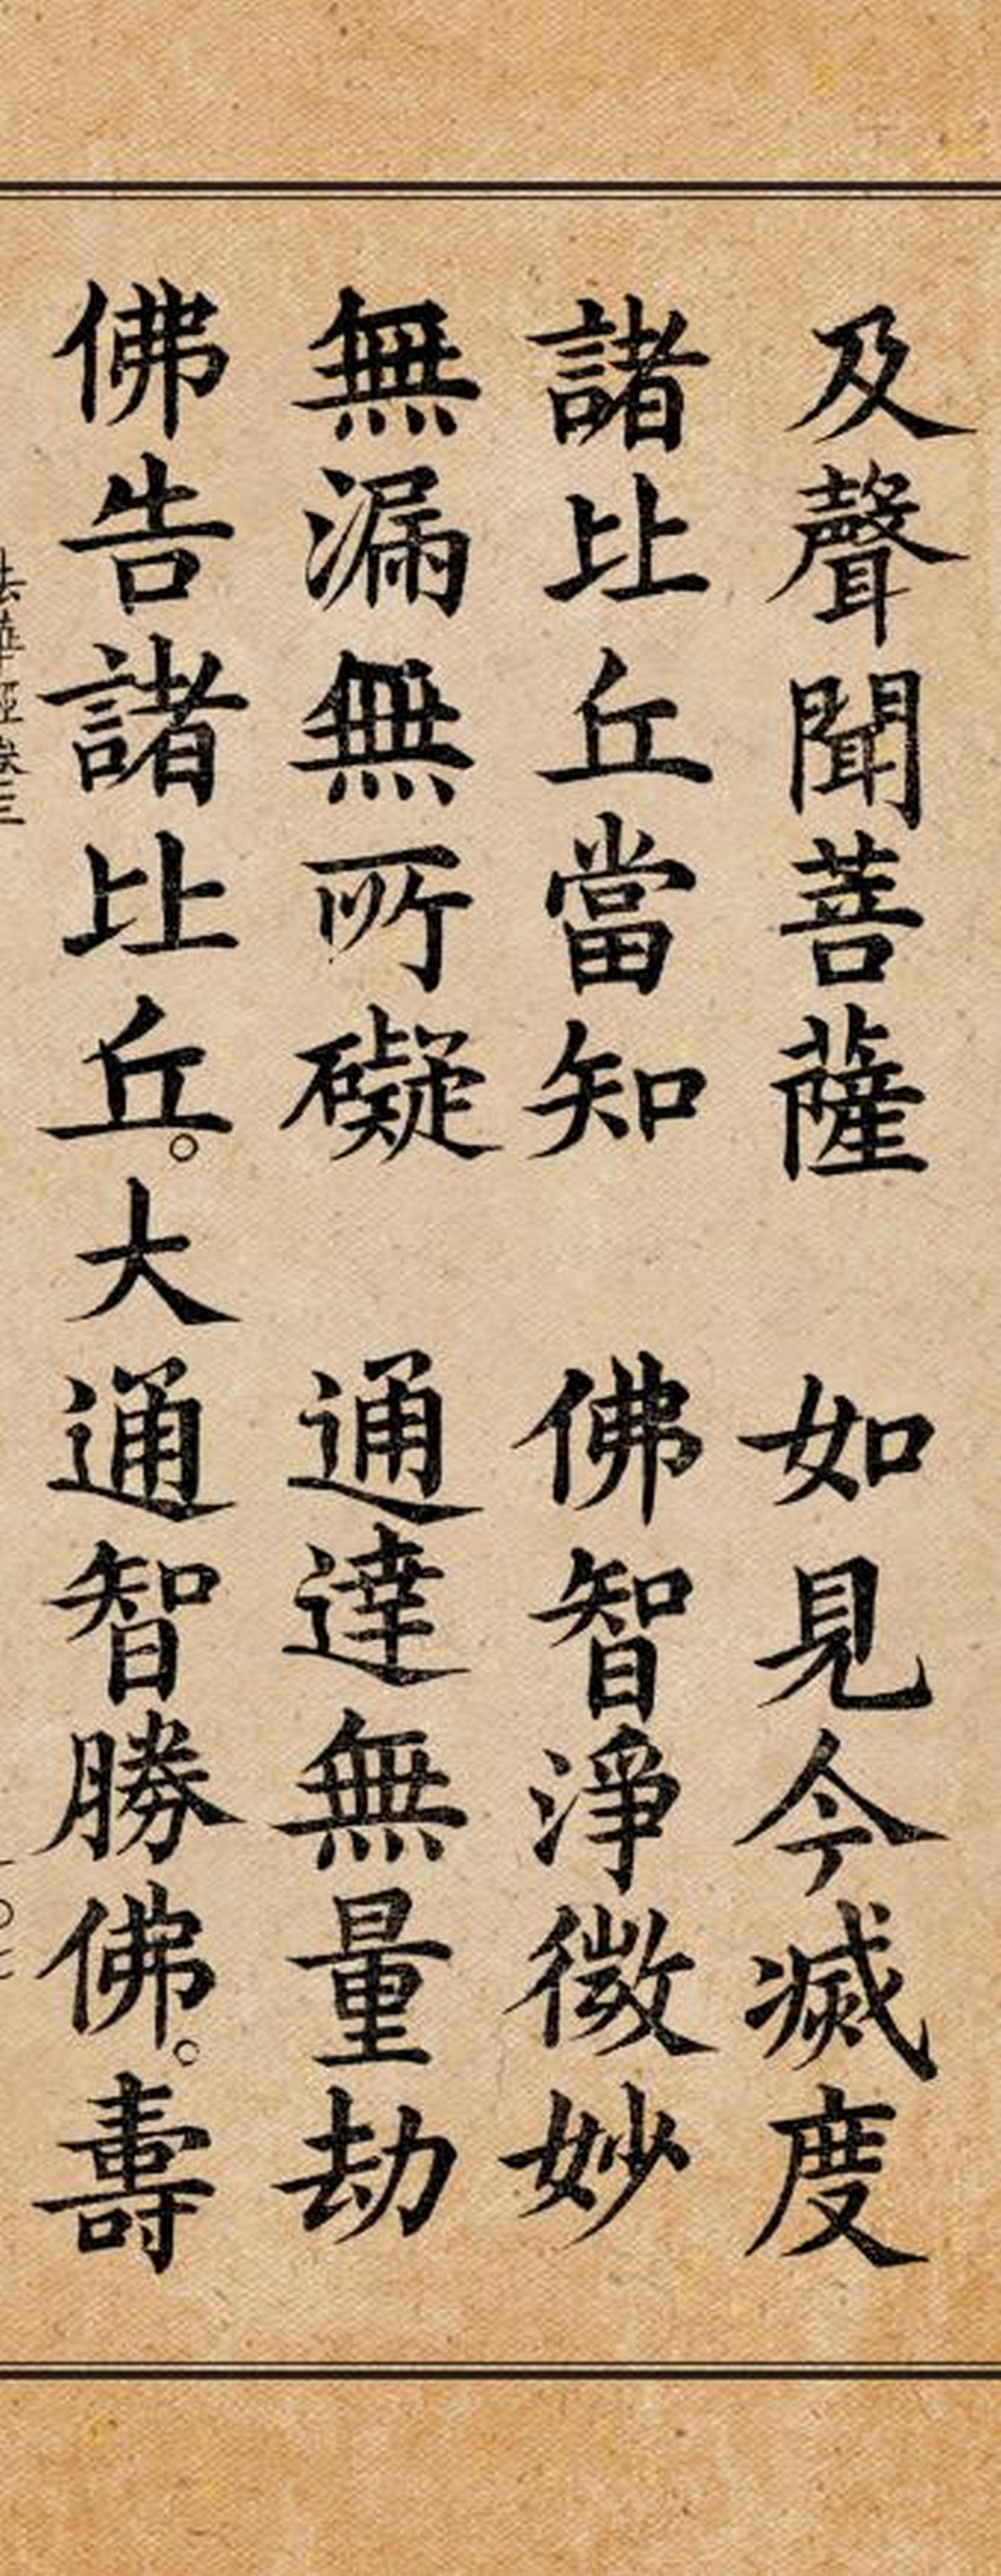 及聲聞菩薩　如見今滅度
諸比丘當知　佛智淨微妙
無漏無所礙　通達無量劫
佛告諸比丘。大通智勝佛。壽
法華經卷三